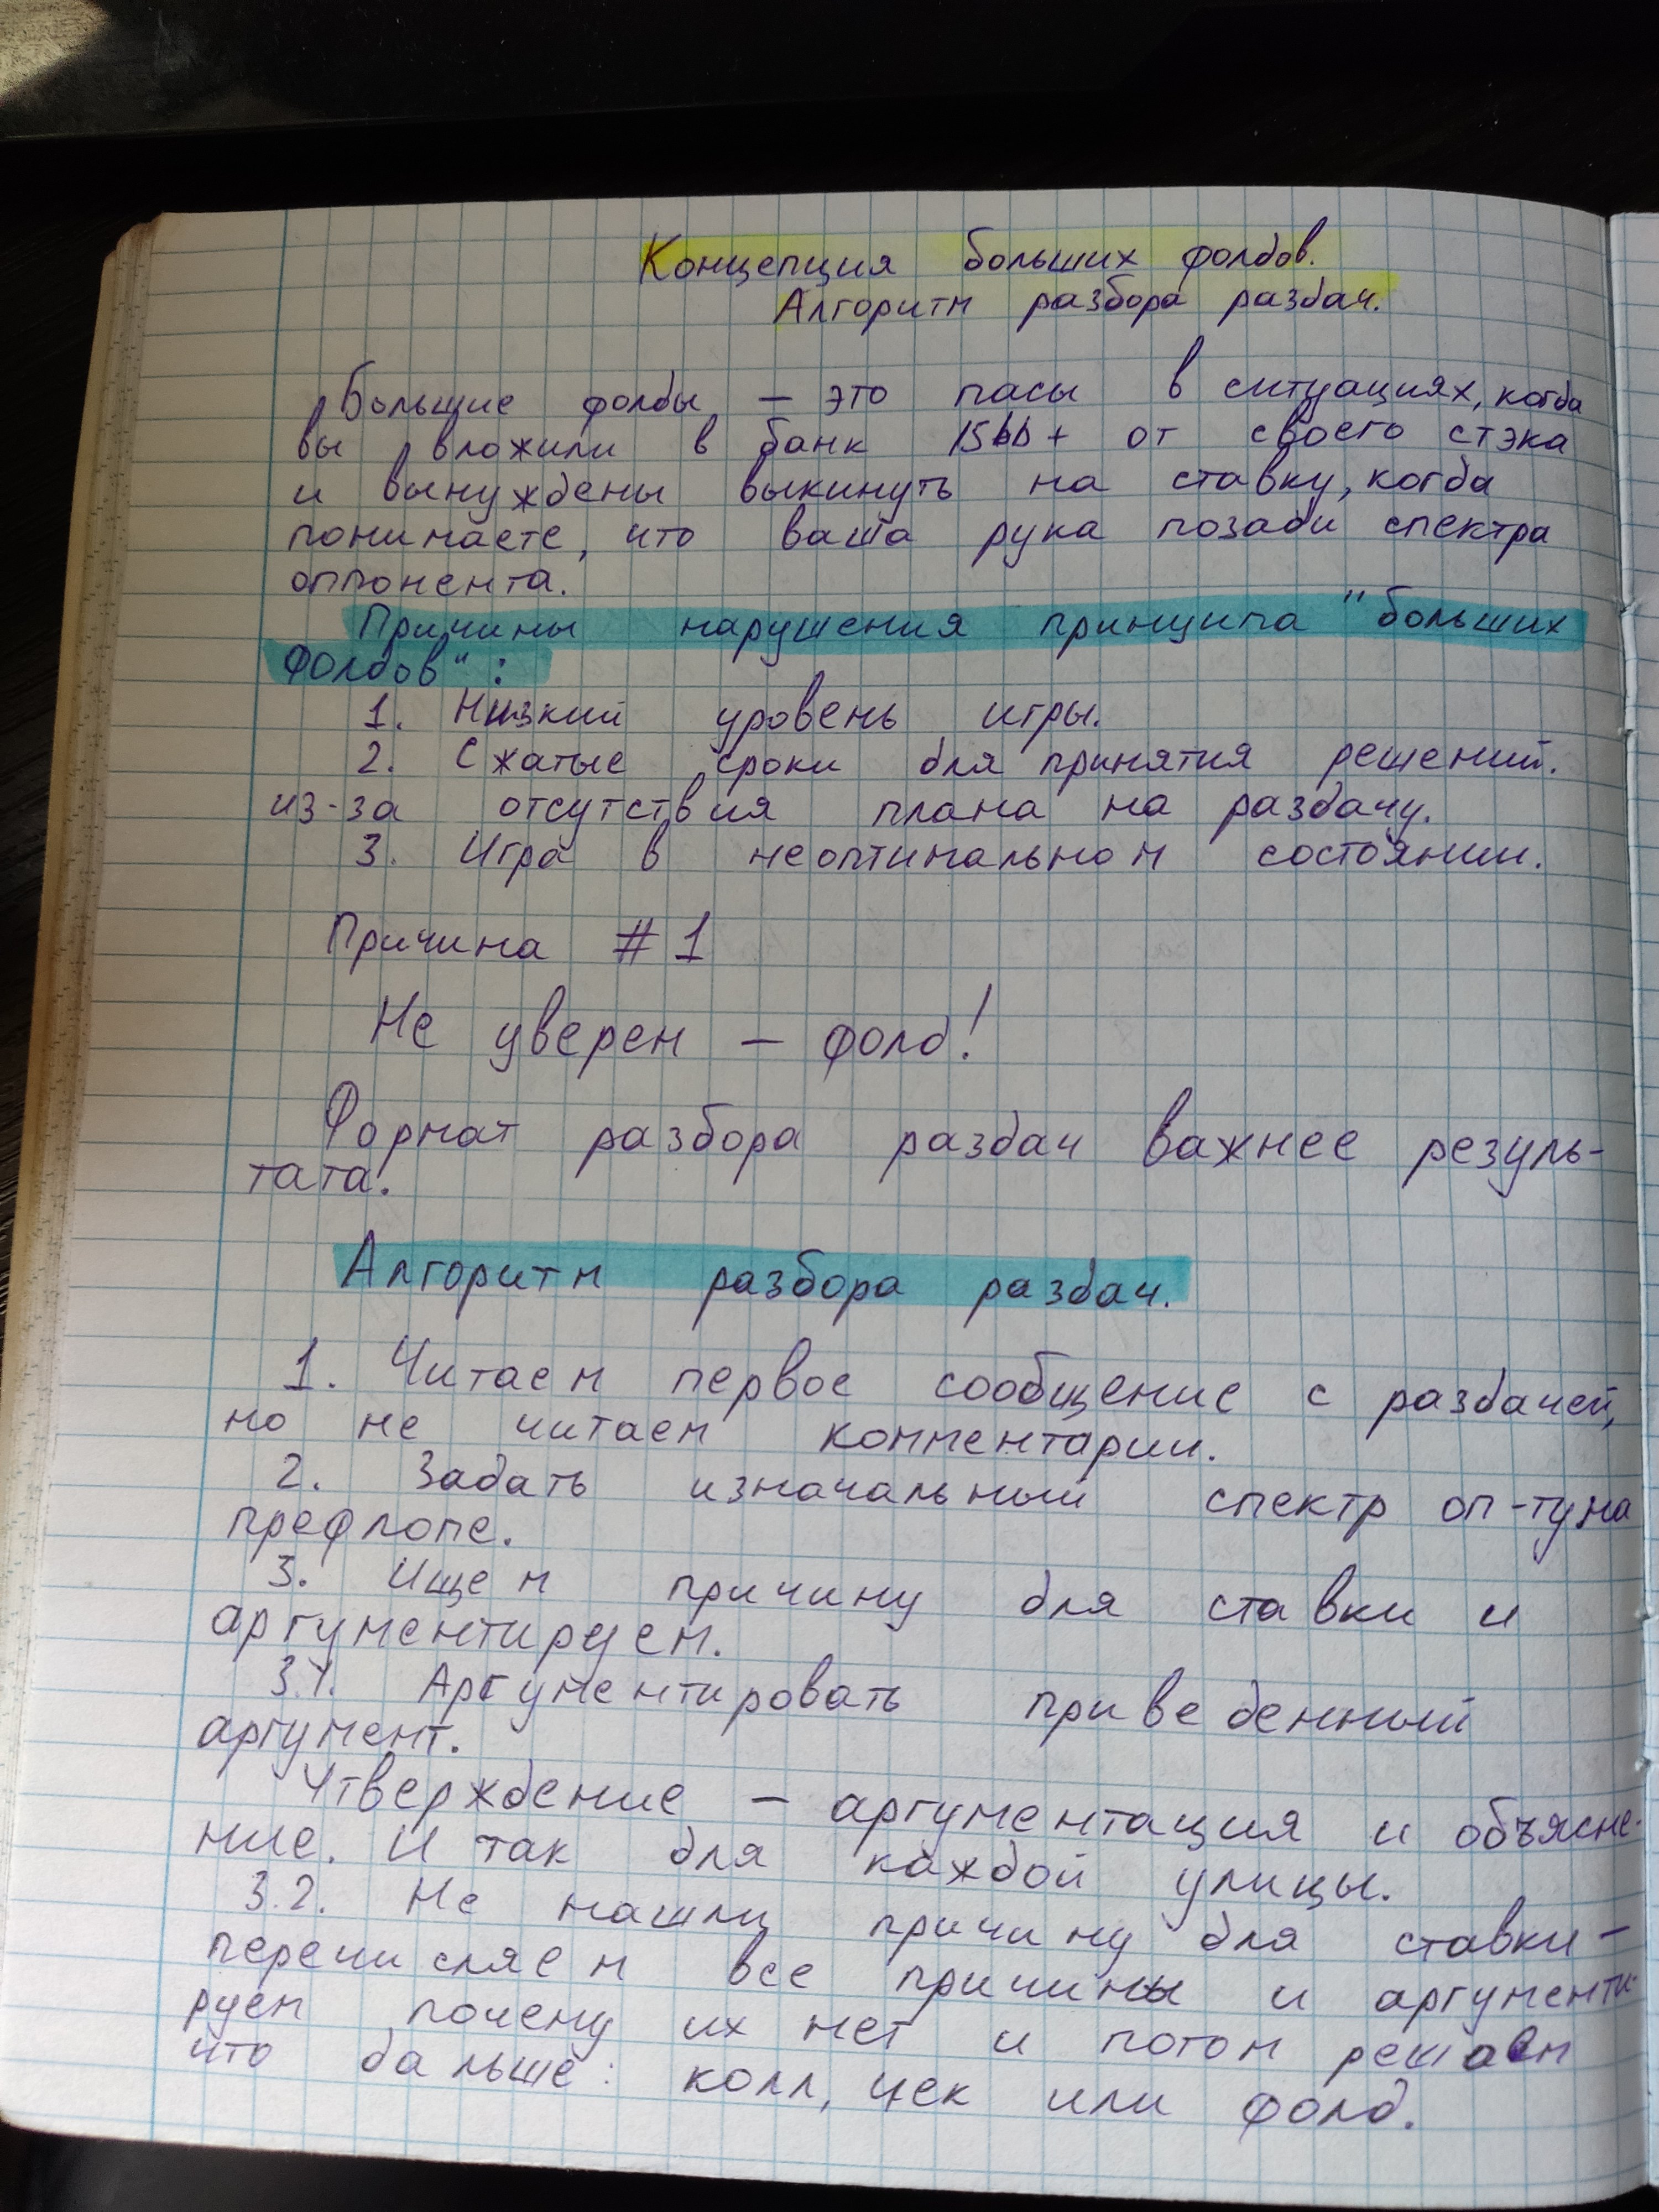 Концепция больших фолдов.
Алгоритм разбора раздач.
Большие фолды — это пасы в ситуациях, когда
вы вложили в банк 15bb+ от своего стэка
и вынуждены выкинуть на ставку, когда
понимаете, что ваша рука позади спектра
оппонента.
Причины нарушения принципа "больших
фолдов":
1. Низкий уровень игры.
2. Сжатые сроки для принятия решений.
из-за отсутствия плана на раздачу.
3. Игра в неоптимальном состоянии.
Причина #1
Не уверен — фолд!
Формат разбора раздач важнее резуль-
тата!
Алгоритм разбора раздач.
1. Читаем первое сообщение с раздачей,
но не читаем комментарии.
2. Задать изначальный спектр оп-ту на
префлопе.
3. Ищем причину для ставки и
аргументируем.
3.1. Аргументировать приведенный
аргумент.
Утверждение — аргументация и объясне-
ние. И так для каждой улицы.
3.2. Не нашли причину для ставки —
перечисляем все причины и аргументи-
руем почему их нет и потом решаем
что дальше: колл, чек или фолд.